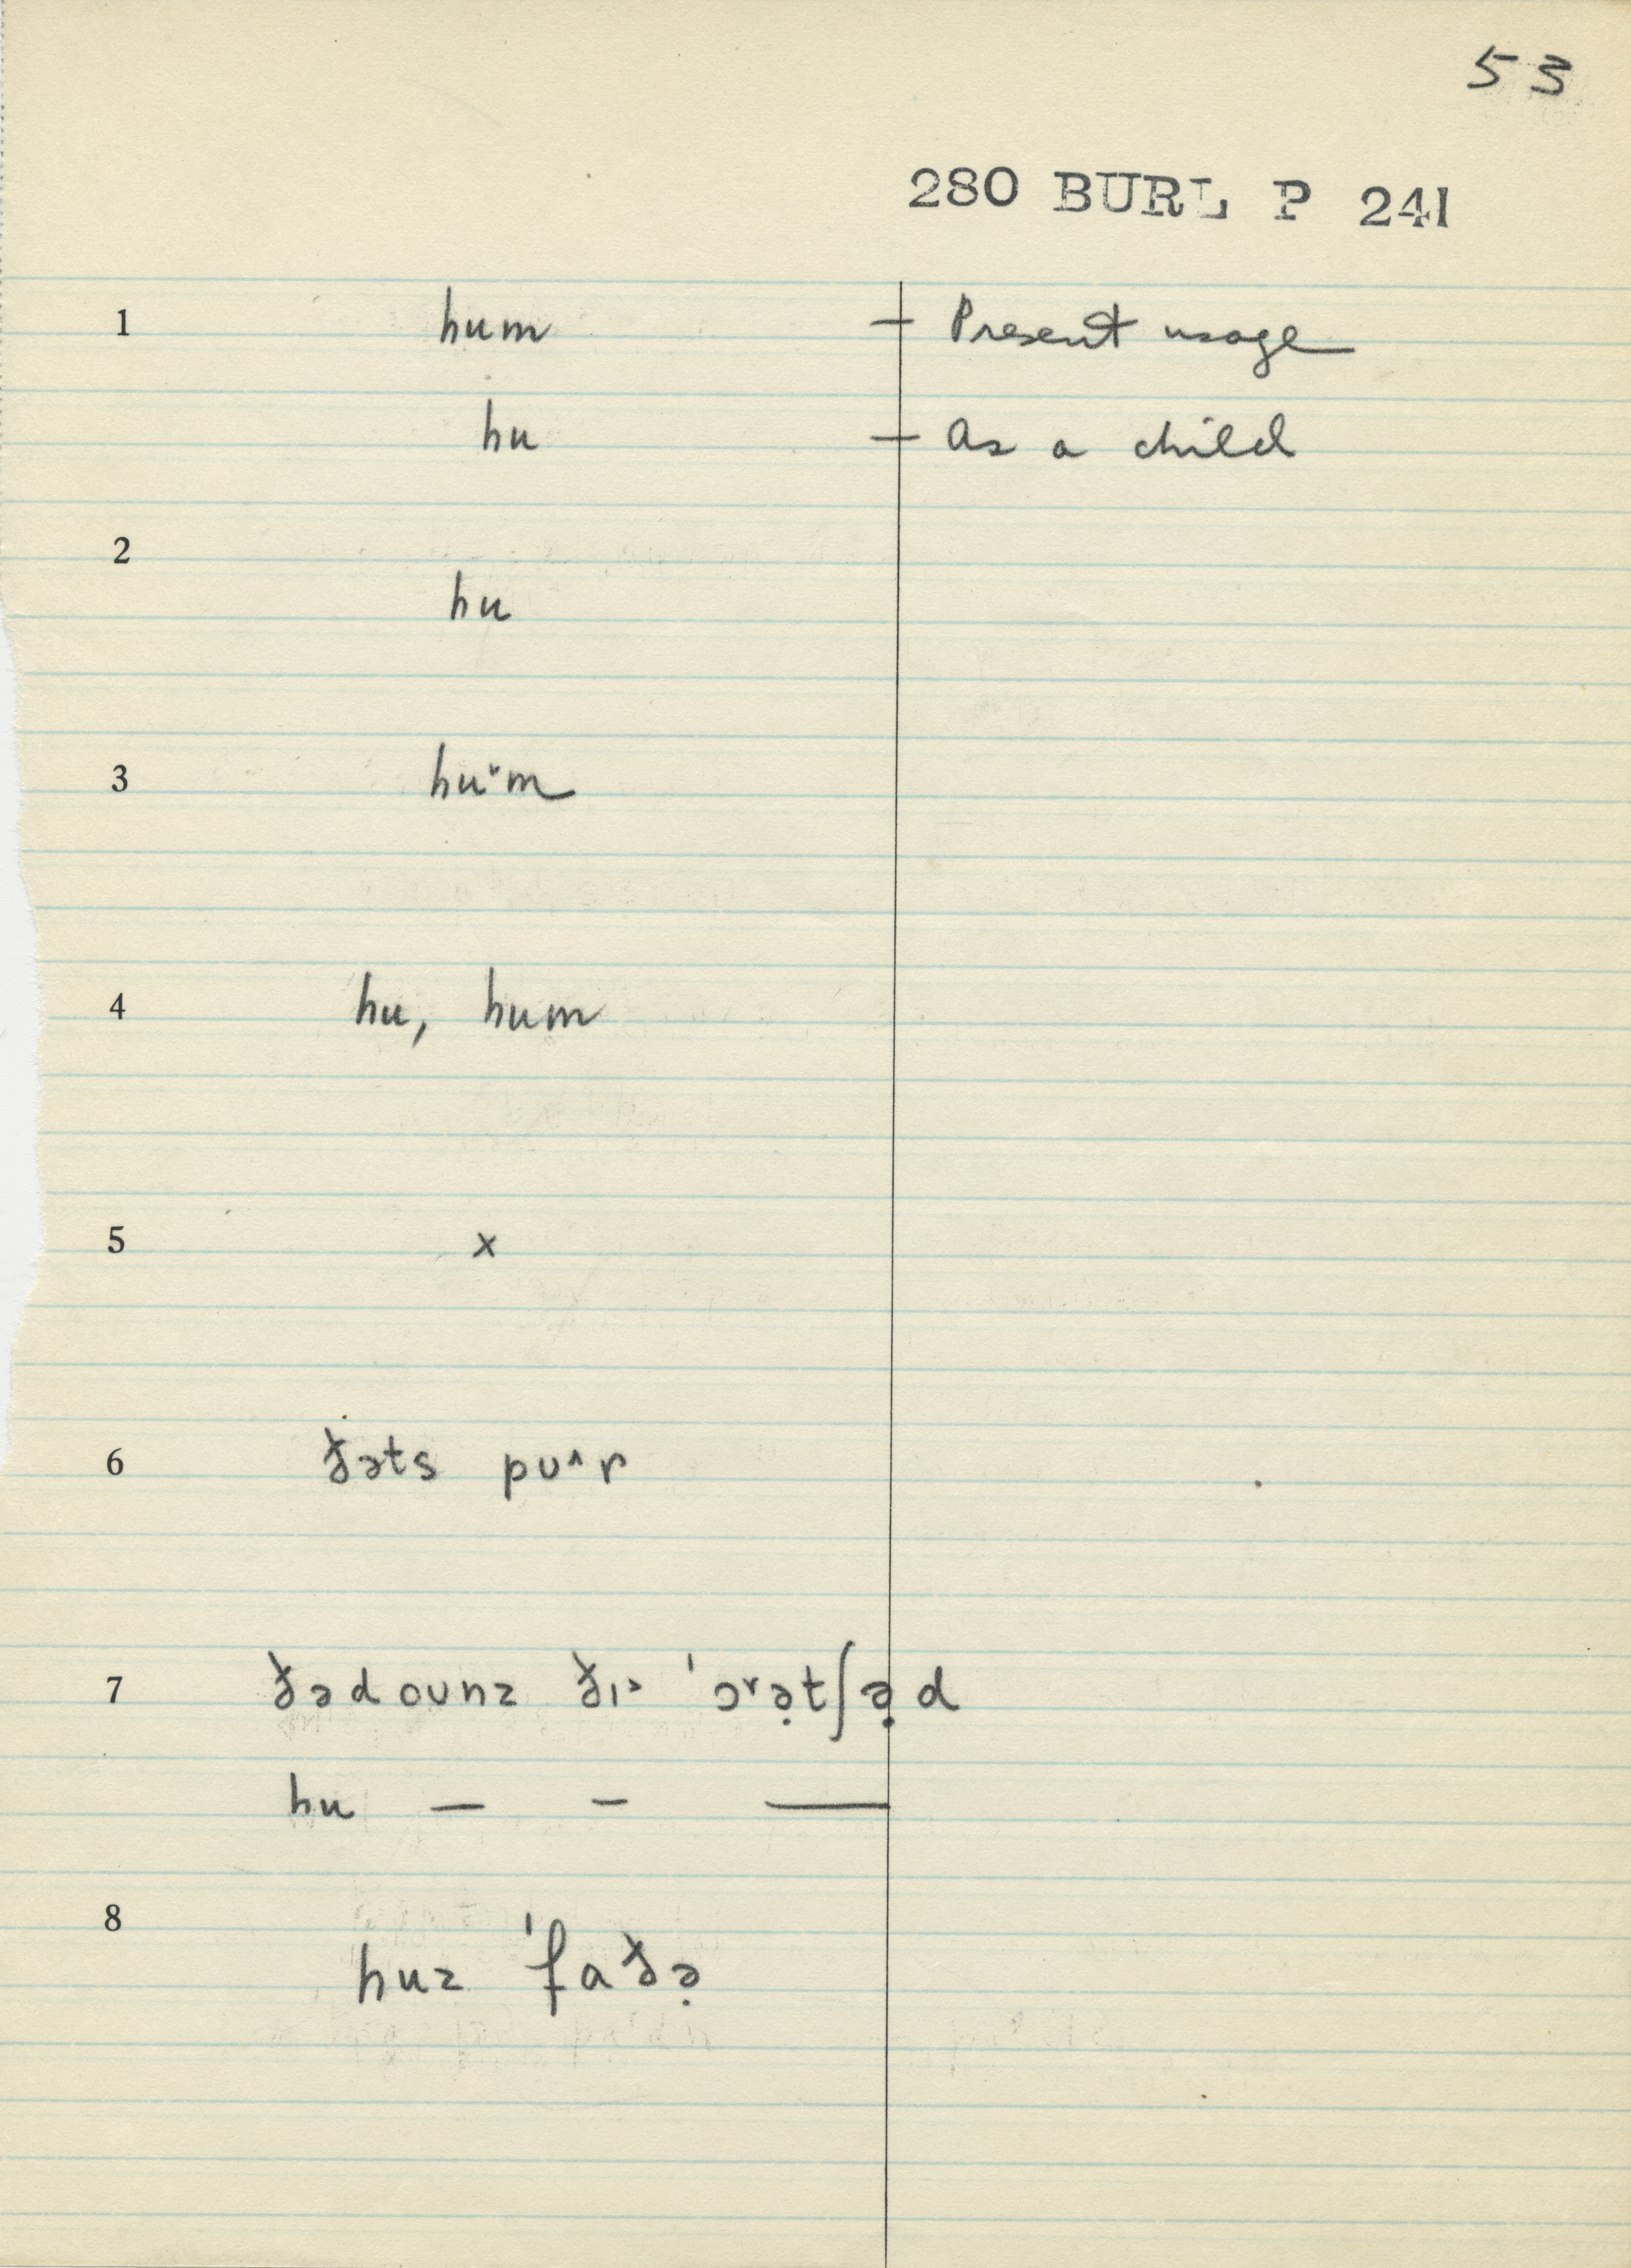 53
280 BURL P 241
1 hum — Present usage
hu — As a child
2
hu
3 hu˅m
4 hu, hum
5 x
6 ðəts pʊ˄r
7 ðədoʊnz ðɪ˃ 'ɔ˞ə̣tʃə̣d
hu — – —
8
huz 'faðə̣